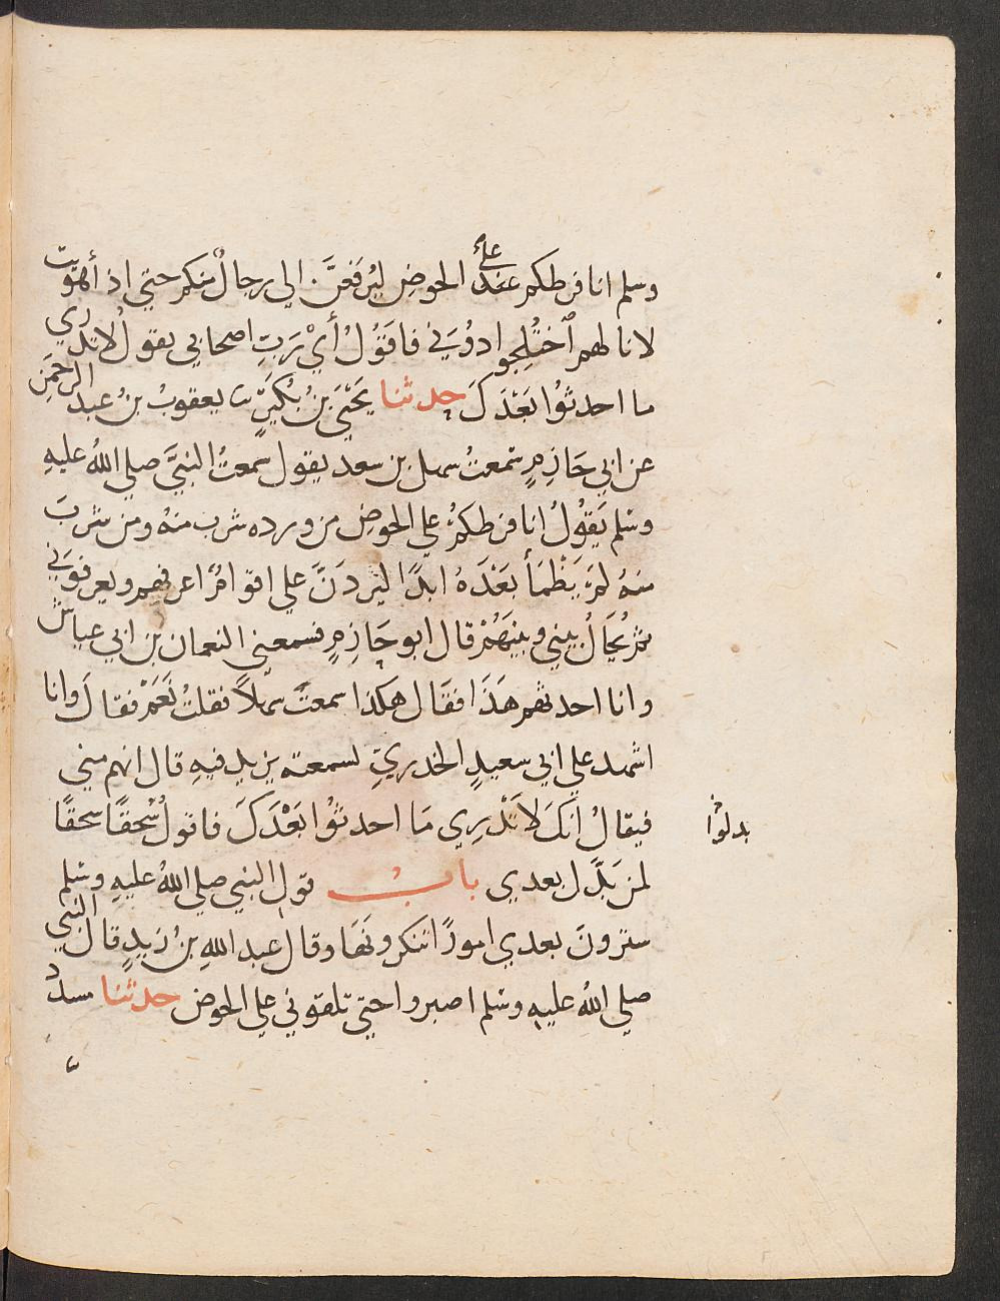 وسلم انا فرطكم عند على الحوضِ ليُرفَعَنَّ الى رجالٌ منكم حتى اذا أهوَيت
لانالهم اختُلِجوا دُونى فاقُولُ أيْ رَبِّ اصحابى يقولُ لا تدرى
ما احدثُوا بَعْدَكَ حدثنا يَحْيَى بْنُ بُكَيرٍ ثنا يعقوبُ بْنُ عبد الرحمَنِ
عن ابى حَازِمٍ سَمعتُ سهل بن سعد يقول سَمعتُ النبيَّ صلى اللهُ عليهِ
وسلم يَقُولُ انا فرطكُمْ على الحوضِ من ورده شرب منهُ ومن شربَ
منهُ لمْ يَظْمَأْ بَعْدَهُ ابدًا ليَردَنَّ على اقوامٌ اعرفهم ويعرفُونى
ثم يُحَالُ بينى وبينَهُمْ قال ابو حَازِمٍ فسمعنى النعمان بن ابى عياشٍ
وانا احدثهم هَذَا فقَال هكذا سمعتَ سهلًا فقلتُ نَعَمْ فقالَ وانا
اشهد على ابى سعيدٍ الخدريّ لسمعته يزيد فيهِ قال انهم منى
فيقالُ انكَ لا تَدْرِى مَا احدثُوا بَعْدَكَ فاقولُ سُحقًا سحقًا
لمن بَدَّل بعدى بابُ قول النبى صلى اللهُ عليهِ وسلم
سترونَ بعدى امورًا تنكرونَهَا وقال عبد اللهِ بنُ زيدٍ قال النبى
صلى اللهُ عليهِ وسلم اصبروا حتى تلقونى على الحوض حدثنا مسدد
بدلوا